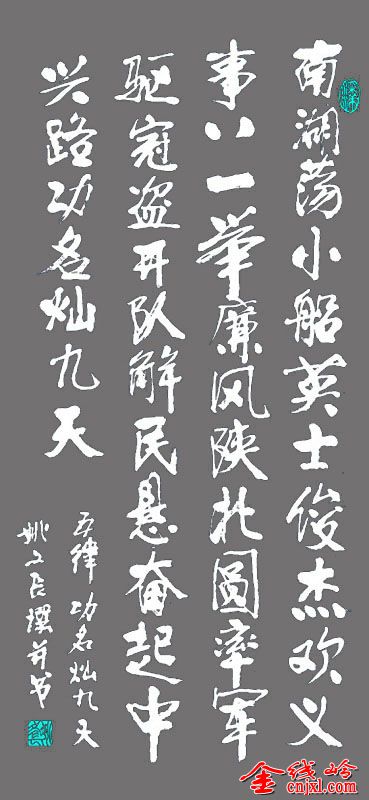 南湖荡小船英士俊杰欢义
事八一举廉风陕北圆率军
驱寇盗开队解民悬奋起中
兴路功名灿九天
五律 功名灿九天
姚文撰并书
金线岭
cnjxl.com